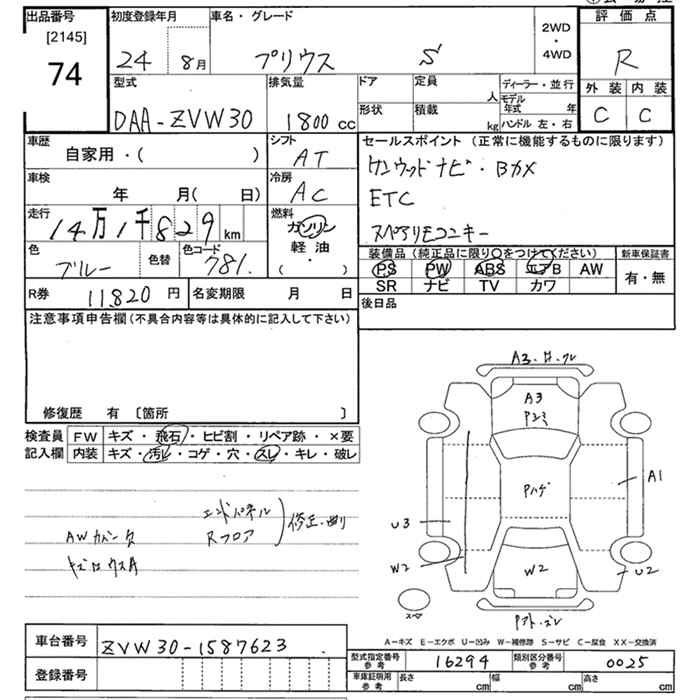 出品番号
[2145]
74
初度登録年月
24 8月
車名・グレード
プリウス S
2WD
・
4WD
評価点
R
外装 内装
C C
型式
DAA-ZVW30
排気量
1800cc
ドア
形状
定員
人
積載
kg
ディーラー・並行
モデル年式 年
ハンドル 左・右
車歴
自家用・( )
シフト
AT
車検
年 月( 日)
冷房
AC
走行
14万1千829km
燃料
ガソリン
軽油
・
( )
色
ブルー
色替
色コード
781.
R券 11820円
名変期限 月 日
セールスポイント(正常に機能するものに限ります)
ケンウッドナビ・Bカメ
ETC
スペアリモコンキー
装備品(純正品に限り○をつけてください)
PS PW ABS エアB AW
SR ナビ TV カワ
新車保証書
有・無
後日品
注意事項申告欄(不具合内容等は具体的に記入して下さい)
修復歴 有 〔箇所 〕
検査員
記入欄
FW キズ・飛石・ヒビ割・リペア跡・×要
内装 キズ・汚レ・コゲ・穴・スレ・キレ・破レ
エンドパネル
Rフロア
修正・曲り
AWガリ
A3
A3
Pハゲ
A1
U3
W2
W2
U2
スペア
A-キズ E-エクボ U-凹み W-補修跡 S-サビ C-腐食 XX-交換済
車台番号 ZVW30-1587623
登録番号
型式指定番号
参考
16294
類別区分番号
参考
0025
車庫証明用
参考
長さ cm
幅 cm
高さ cm